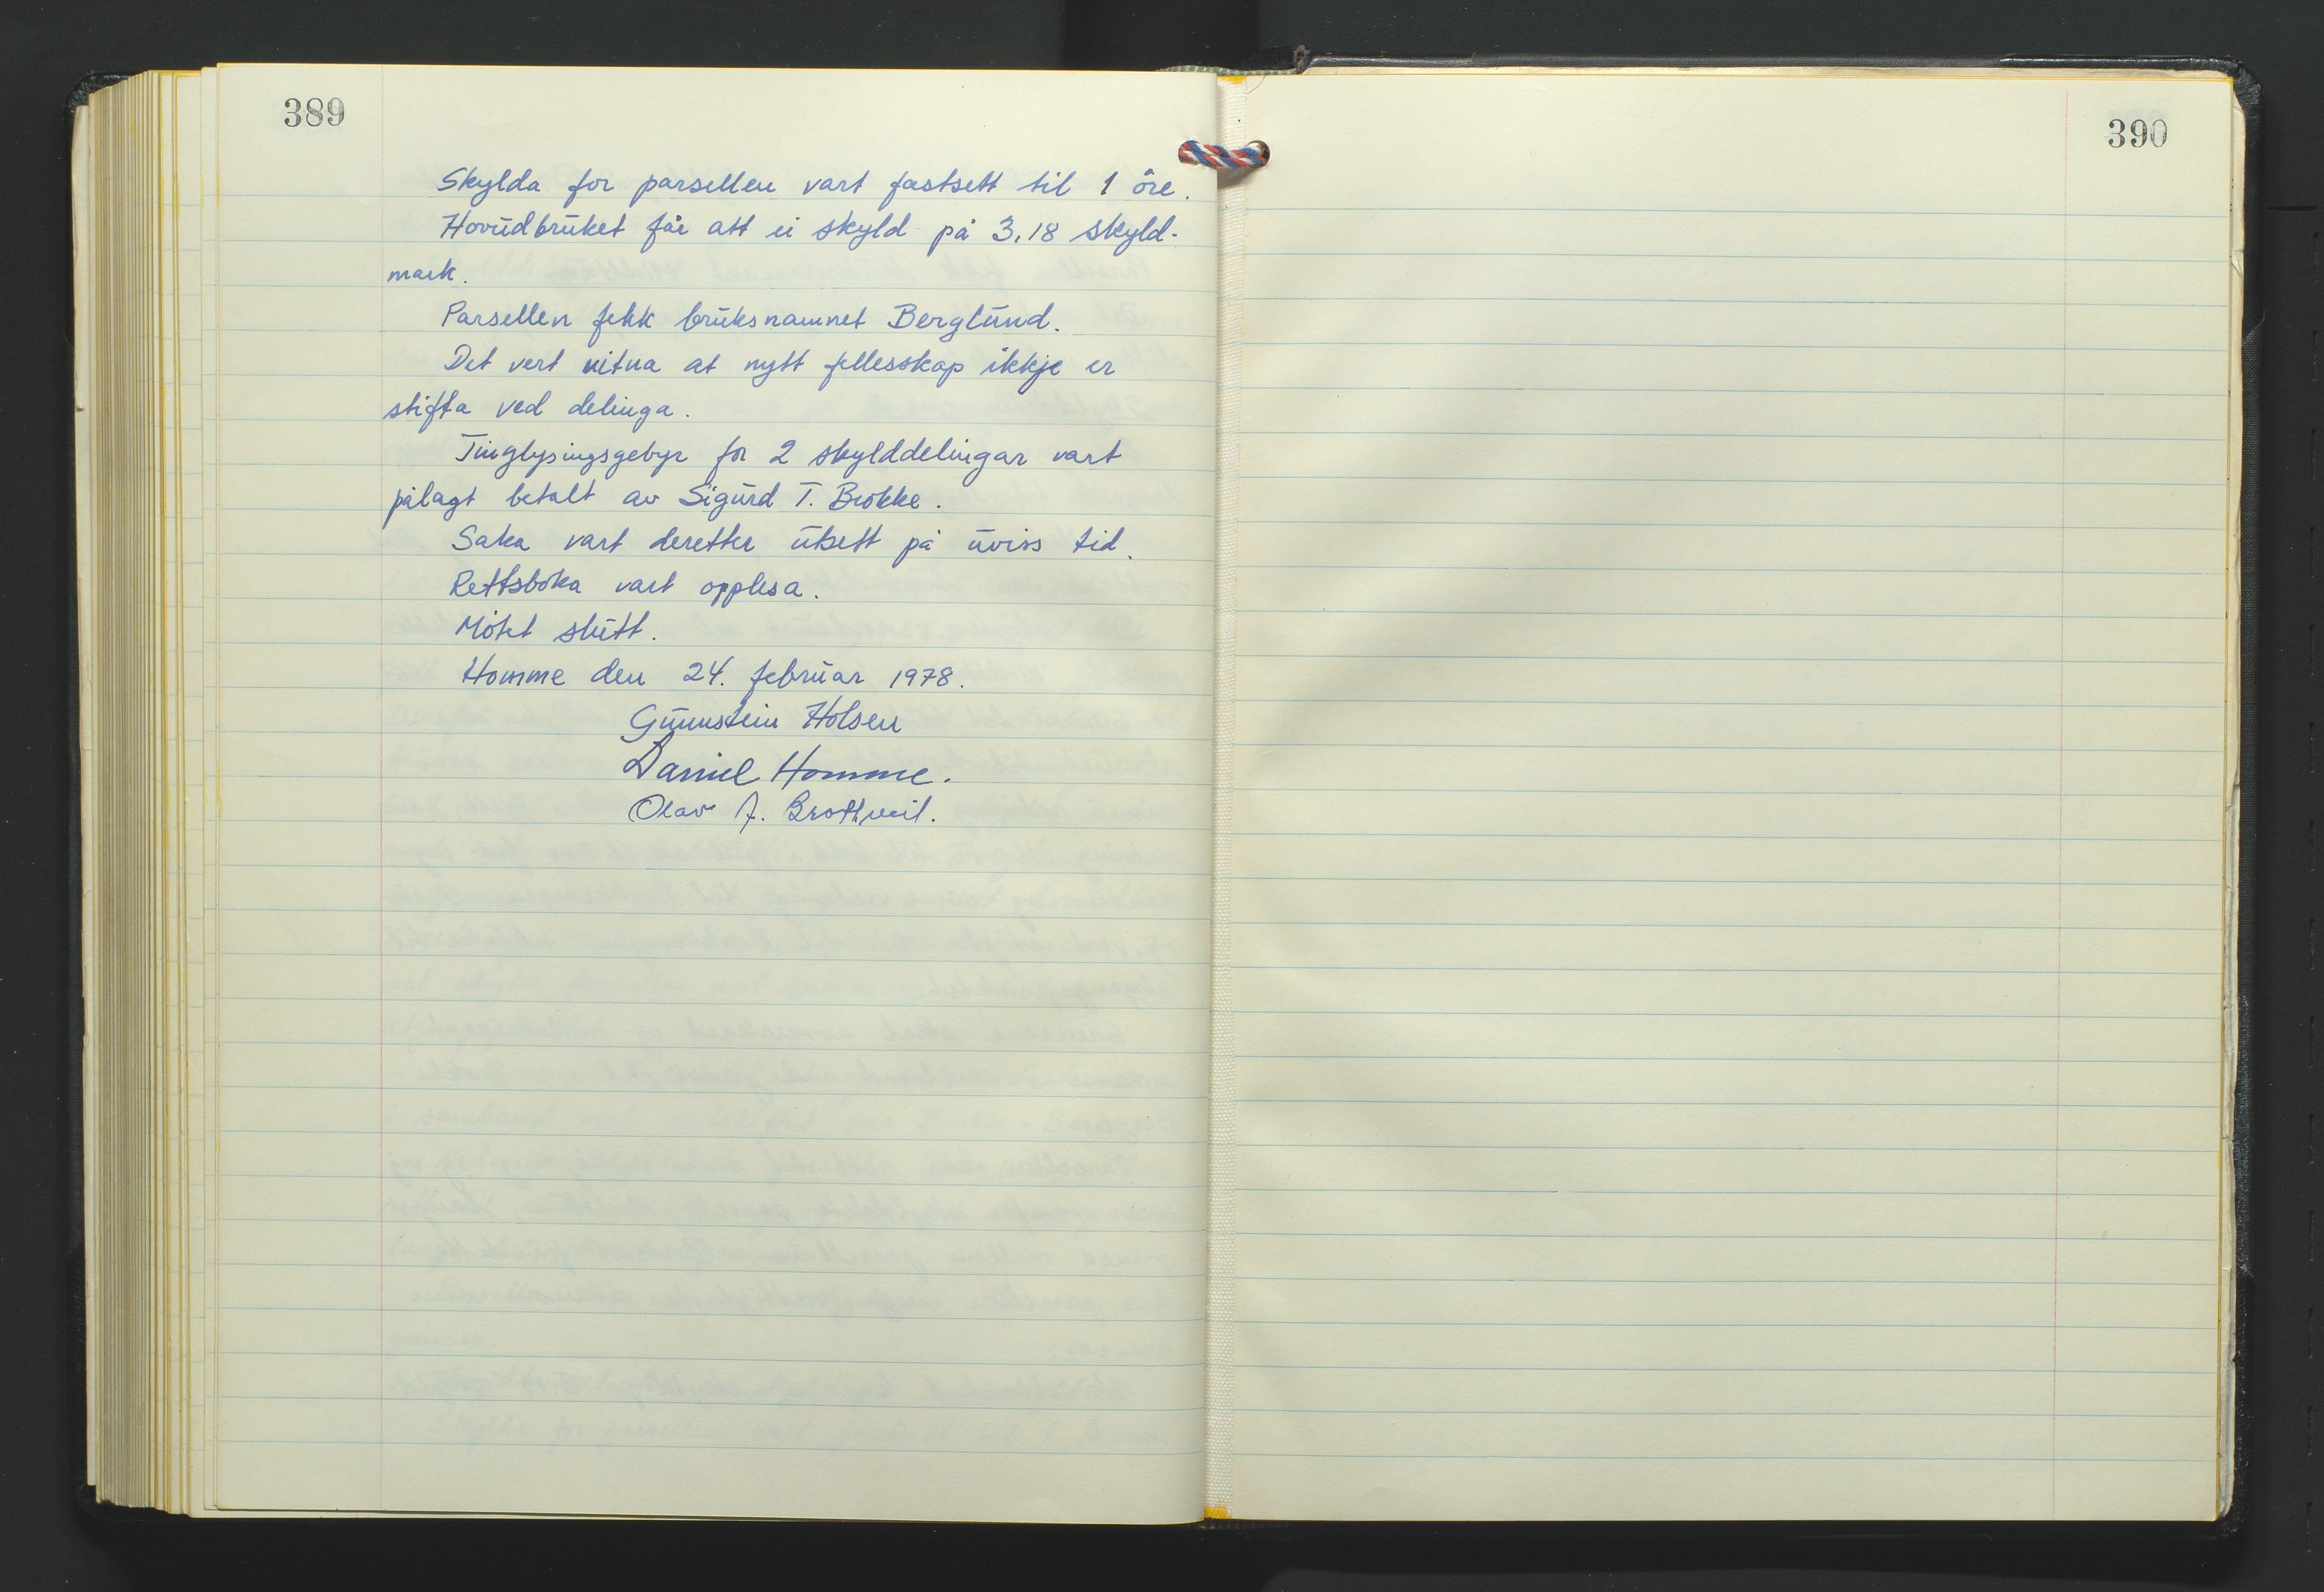 389
Skylda for parsellen vart fastsett til 1 öre.
Hovudbruket får att ei skyld på 3,18 skyld-
mark.
Parsellen fekk bruksnamnet Berglund.
Det vert vitna at nytt fellesskap ikkje er
stifta ved delinga.
Tinglysingsgebyr for 2 skylddelingar vart
pålagt betalt av Sigurd T. Brokke.
Saka vart deretter utsett på uviss tid.
Rettsboka vart opplesa.
Mötet slutt.
Homme den 24. februar 1978.
Gunnstein Holsen
Daniel Homme.
Olav J. Brottveit.
390